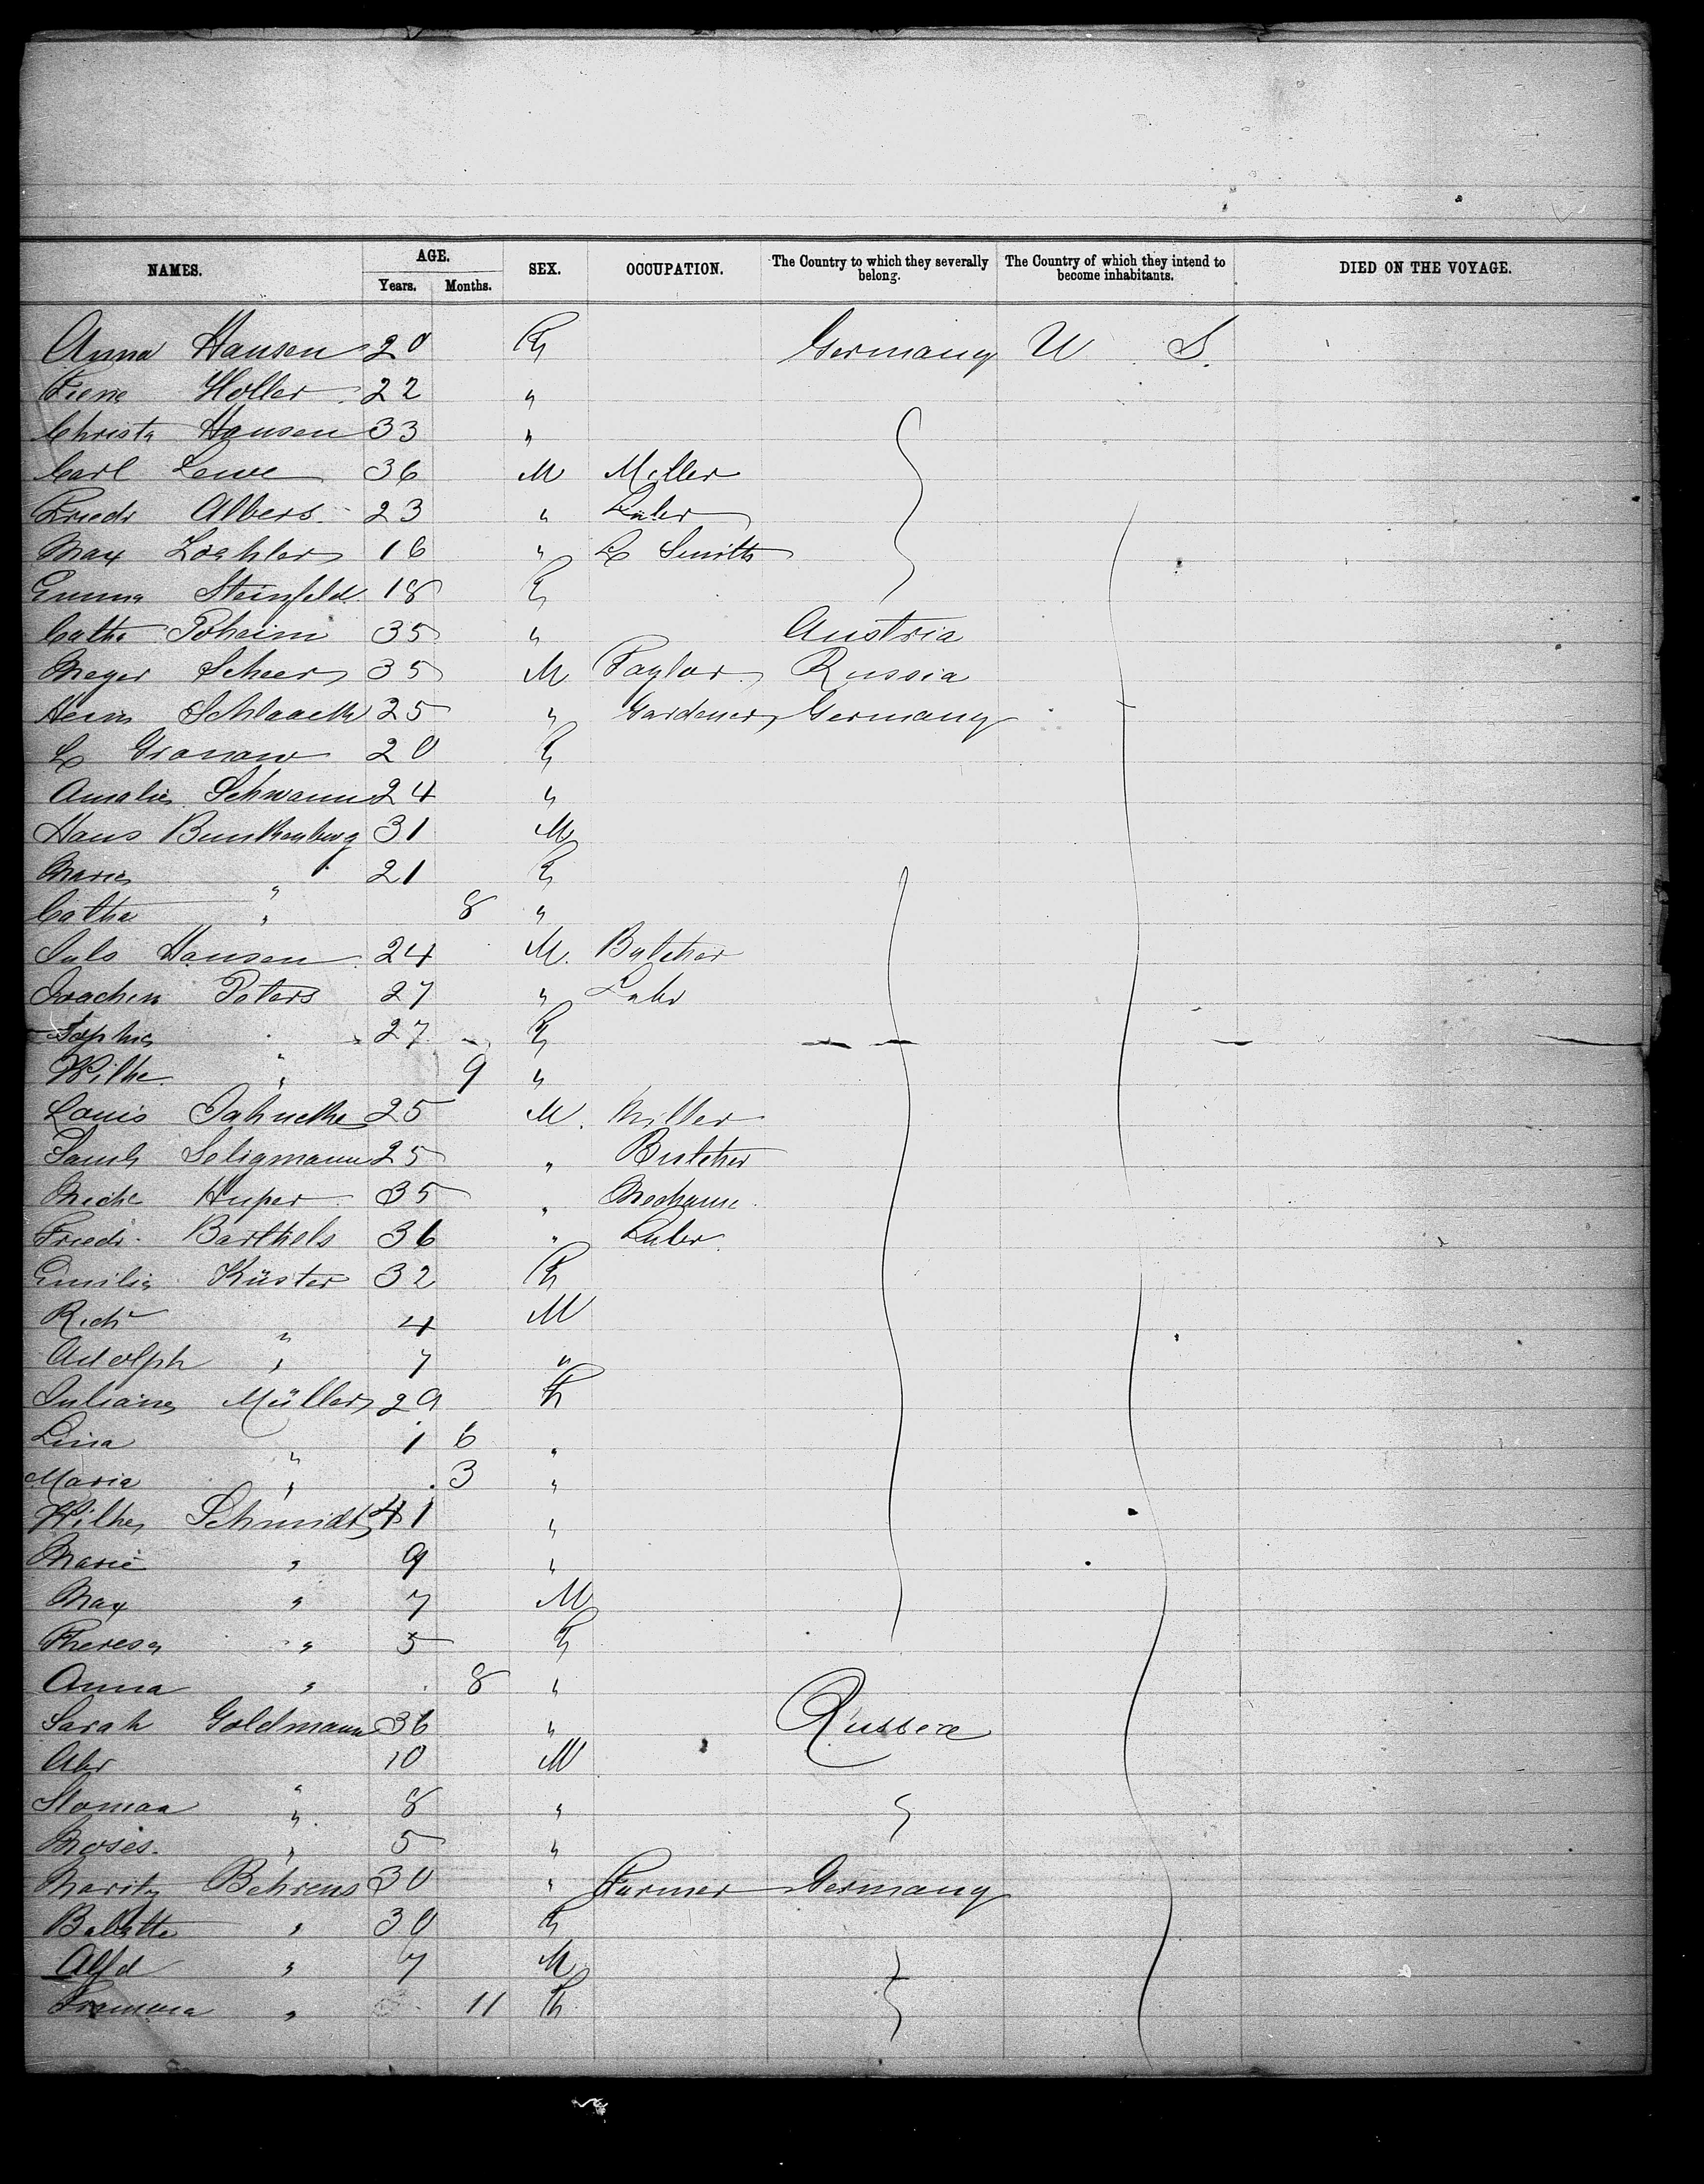 NAMES. AGE. Years. Months. SEX. OCCUPATION. The Country to which they severally belong. The Country of which they intend to become inhabitants. DIED ON THE VOYAGE.
Anna Hansen 20 F Germany U S.
Holler 22 "
Christa Hansen 33 "
Carl Lewe 36 M Miller
Friedr Albers 23 " Labr
Max 16 " Smith
Emma Steinfeld 18 F
Cathe 35 " Austria
Meyer Scheer 35 M Taylor Russia
Schlaack 25 " Gardener Germany
Granaw 20 F
Amalie Schwann 24 "
Hans 31 M
Marie " 21 F
Cathe " 8 "
Hansen 24 M. Butcher
Joachim Peters 27 " Labr
Sophie " 27 F
Wilhe " 9 "
Louis Jahncke 25 M. Miller
Saml Seligmann 25 " Butcher
Huper 35 " Mechanic
Friedr. Barthels 36 " Labr
Emilie Küster 32 F
Richd " 4 M
Adolph " 7 "
Juliane Müller 29 F
Lina " 1 6 "
Maria " . 3 "
Wilhe Schmidt 41 "
Marie " 9 "
Max " 7 M
Theresa " 5 F
Anna " . 8 "
Sarah Goldmann 36 " Russia
Abr " 10 M
" 8 "
Moses " 5 "
Moritz Behrens 30 " Farmer Germany
Babette " 30 F
Alfd " 7 M
" 11 F